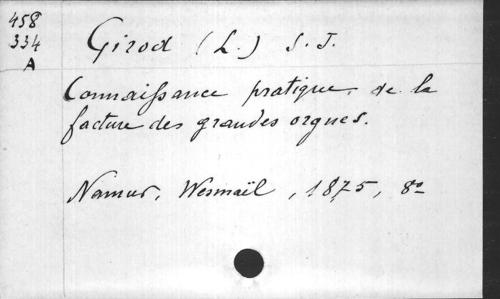 458
334
A
Girod (L.) S. J.
Connaissance pratique de la
facture des grandes orgues.
Namur, Wesmaël, 1875, 8º